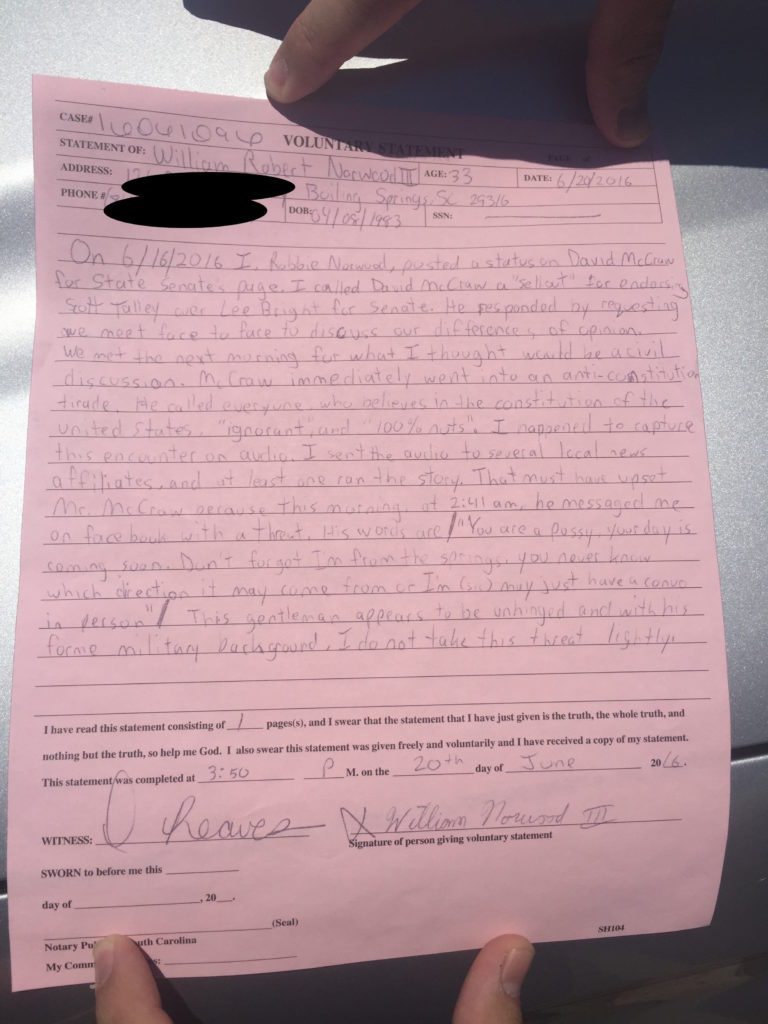 CASE# 16061096
VOLUNTARY STATEMENT
STATEMENT OF: William Robert Norwood III AGE: 33 DATE: 6/20/2016
ADDRESS: Boiling Springs, SC 29316
PHONE # DOB: 04/08/1983 SSN:
On 6/16/2016 I, Robbie Norwood, posted a status on David McCraw
for State Senate's page. I called David McCraw a "sellout" for endorsing
Scott Talley over Lee Bright for Senate. He responded by requesting
we meet face to face to discuss our differences of opinion.
We met the next morning for what I thought would be a civil
discussion. McCraw immediately went into an anti-constitution
tirade. He called everyone, who believes in the constitution of the
united States, "ignorant", and "100% nuts". I happened to capture
this encounter on audio. I sent the audio to several local news
affiliates, and at least one ran the story. That must have upset
Mr. McCraw because this morning, at 2:41 am, he messaged me
on facebook with a threat. His words are "You are a pussy, your day is
coming soon. Don't forgot I'm from the springs, you never know
which direction it may come from or I'm (sic) may just have a convo
in person" This gentleman appears to be unhinged and with his
forme military background, I do not take this threat lightly.
I have read this statement consisting of 1 pages(s), and I swear that the statement that I have just given is the truth, the whole truth, and
nothing but the truth, so help me God. I also swear this statement was given freely and voluntarily and I have received a copy of my statement.
This statement was completed at 3:50 P M. on the 20th day of June 2016.
WITNESS: X William Norwood III
Signature of person giving voluntary statement
SWORN to before me this
day of , 20 .
(Seal)
SH104
Notary South Carolina
My